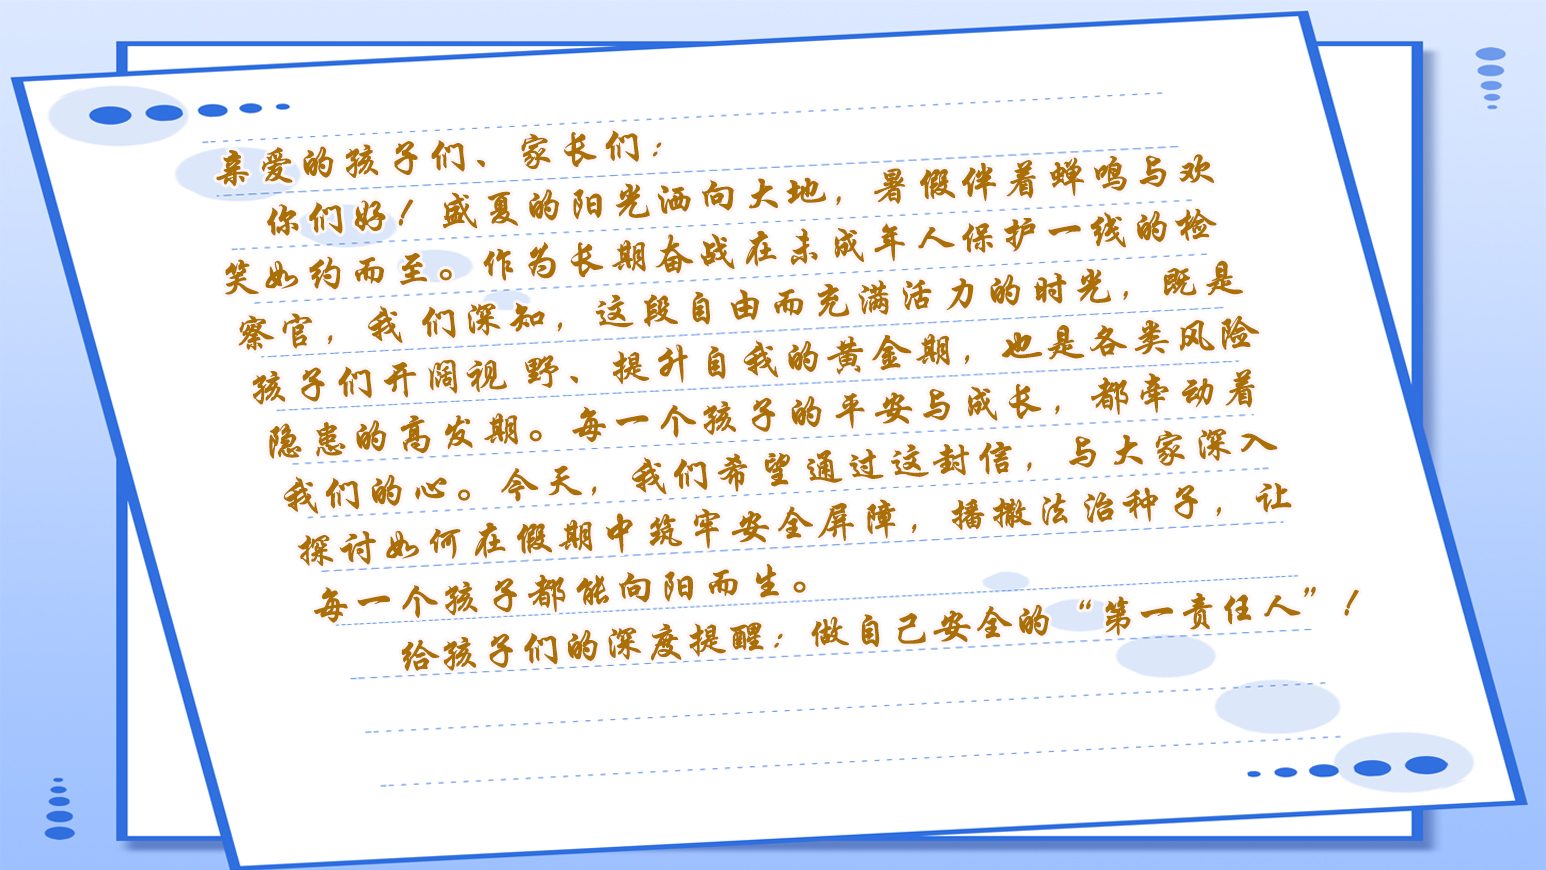 亲爱的孩子们、家长们：
你们好！盛夏的阳光洒向大地，暑假伴着蝉鸣与欢
笑如约而至。作为长期奋战在未成年人保护一线的检
察官，我们深知，这段自由而充满活力的时光，既是
孩子们开阔视野、提升自我的黄金期，也是各类风险
隐患的高发期。每一个孩子的平安与成长，都牵动着
我们的心。今天，我们希望通过这封信，与大家深入
探讨如何在假期中筑牢安全屏障，播撒法治种子，让
每一个孩子都能向阳而生。
给孩子们的深度提醒：做自己安全的“第一责任人”！